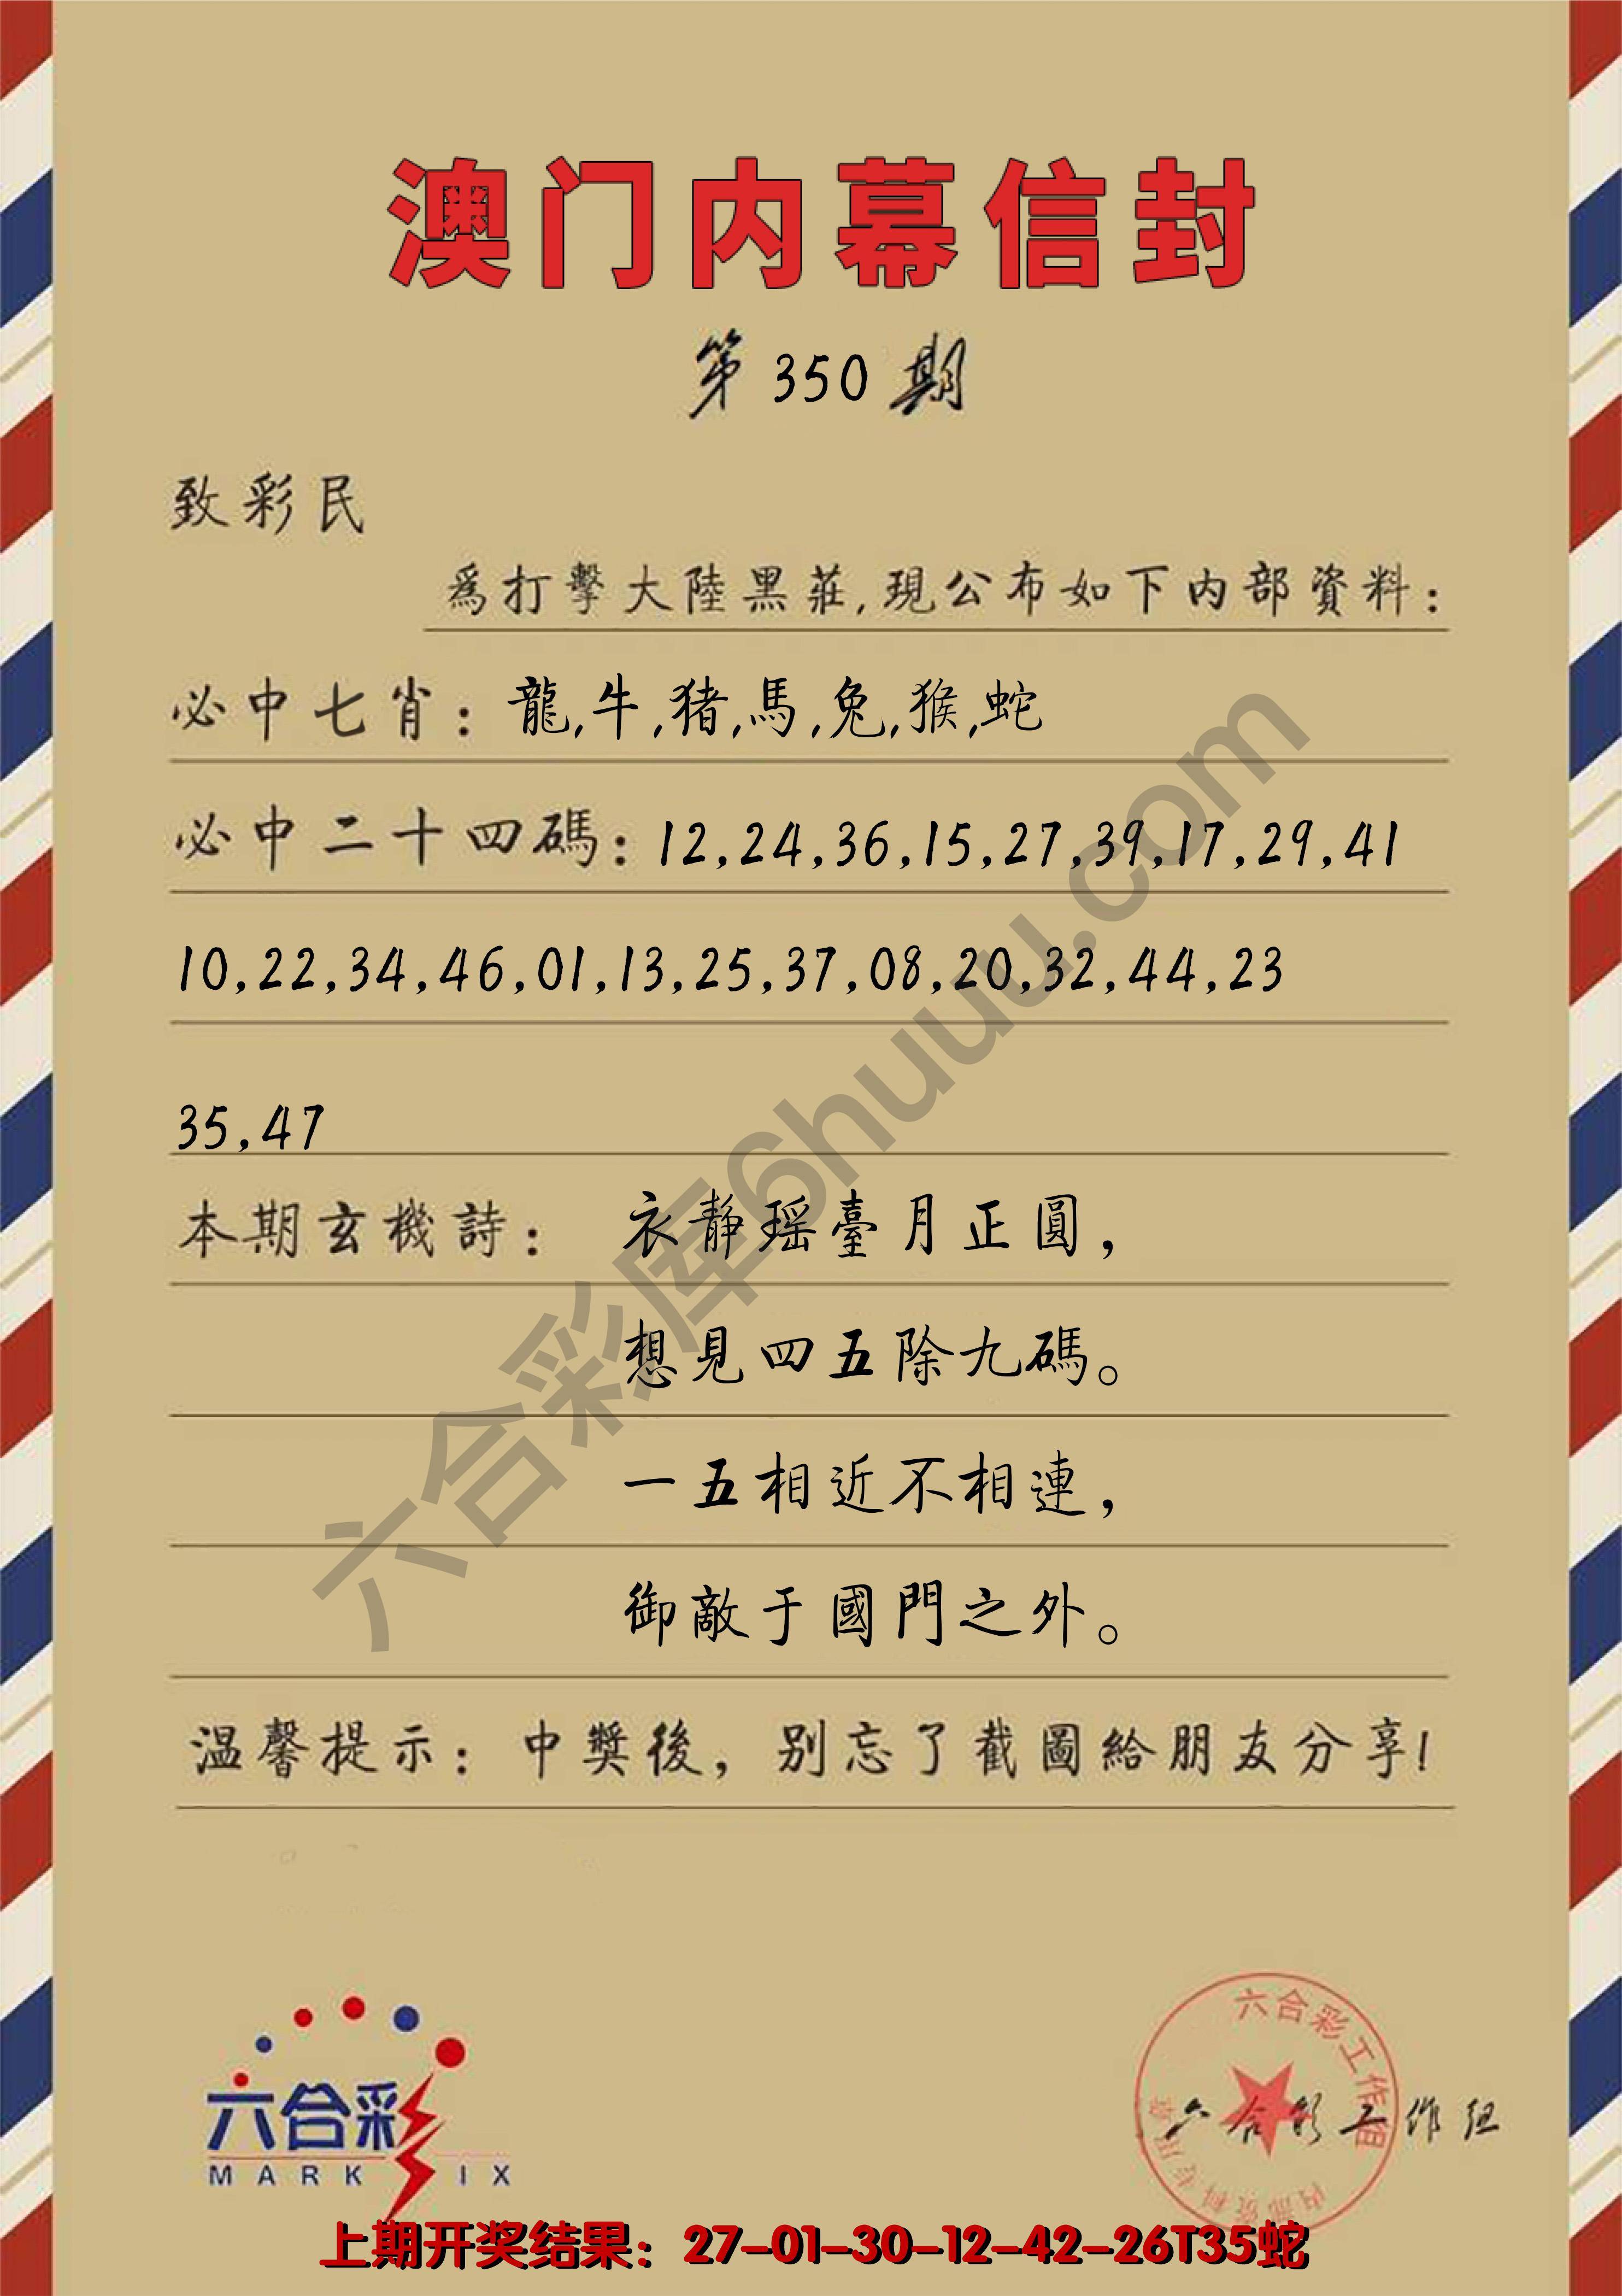 澳门内幕信封
第350期
致彩民
爲打擊大陸黑莊,現公布如下内部資料:
必中七肖:龍,牛,猪,馬,兔,猴,蛇
必中二十四碼:12,24,36,15,27,39,17,29,41
10,22,34,46,01,13,25,37,08,20,32,44,23
35,47
本期玄機詩: 衣靜瑶臺月正圓,
想見四五除九碼。
一五相近不相連,
御敵于國門之外。
温馨提示:中獎後,别忘了截圖給朋友分享!
六合彩库6huuu.com
六合彩
MARK IX
六合彩工作组
内部资料专用章
六合彩工作组
上期开奖结果:27-01-30-12-42-26T35蛇